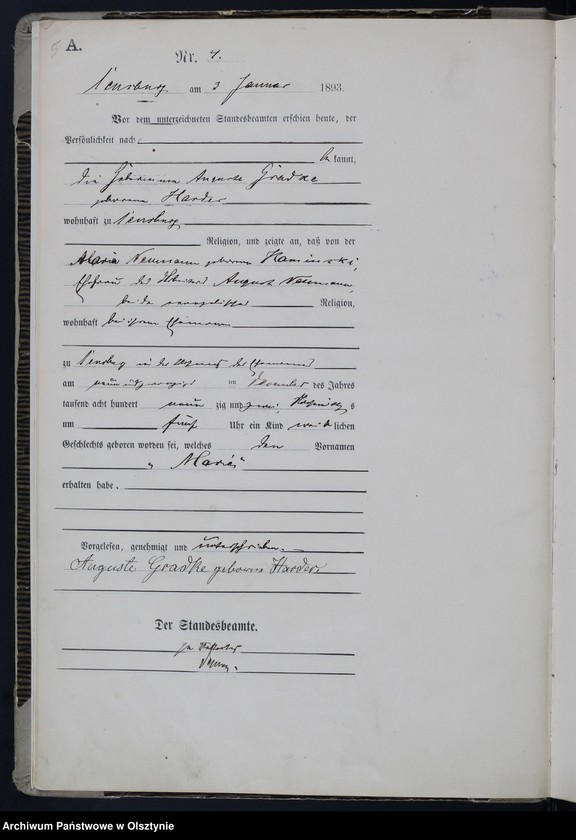 A.
Nr. 7.
Sensburg am 3 Januar 1893.
Vor dem unterzeichneten Standesbeamten erschien heute, der
Persönlichkeit nach
be kannt,
die Hebamme Auguste Gradke
geborene Harder
wohnhaft zu Sensburg
Religion, und zeigte an, daß von der
Maria Neumann geborene Kaminski,
Ehefrau des August Neumann,
beide evangelischer Religion,
wohnhaft bei ihrem Ehemann
zu Sensburg in der Wohnung des Ehemannes
am neunundzwanzigsten Dezember des Jahres
tausend acht hundert neun zig und zwei Nachmittags
um fünf Uhr ein Kind weiblichen
Geschlechts geboren worden sei, welches den Vornamen
„Marie“
erhalten habe.
Vorgelesen, genehmigt und unterschrieben.
Auguste Gradke geborene Harder
Der Standesbeamte.
In Vertretung
Archiwum Państwowe w Olsztynie